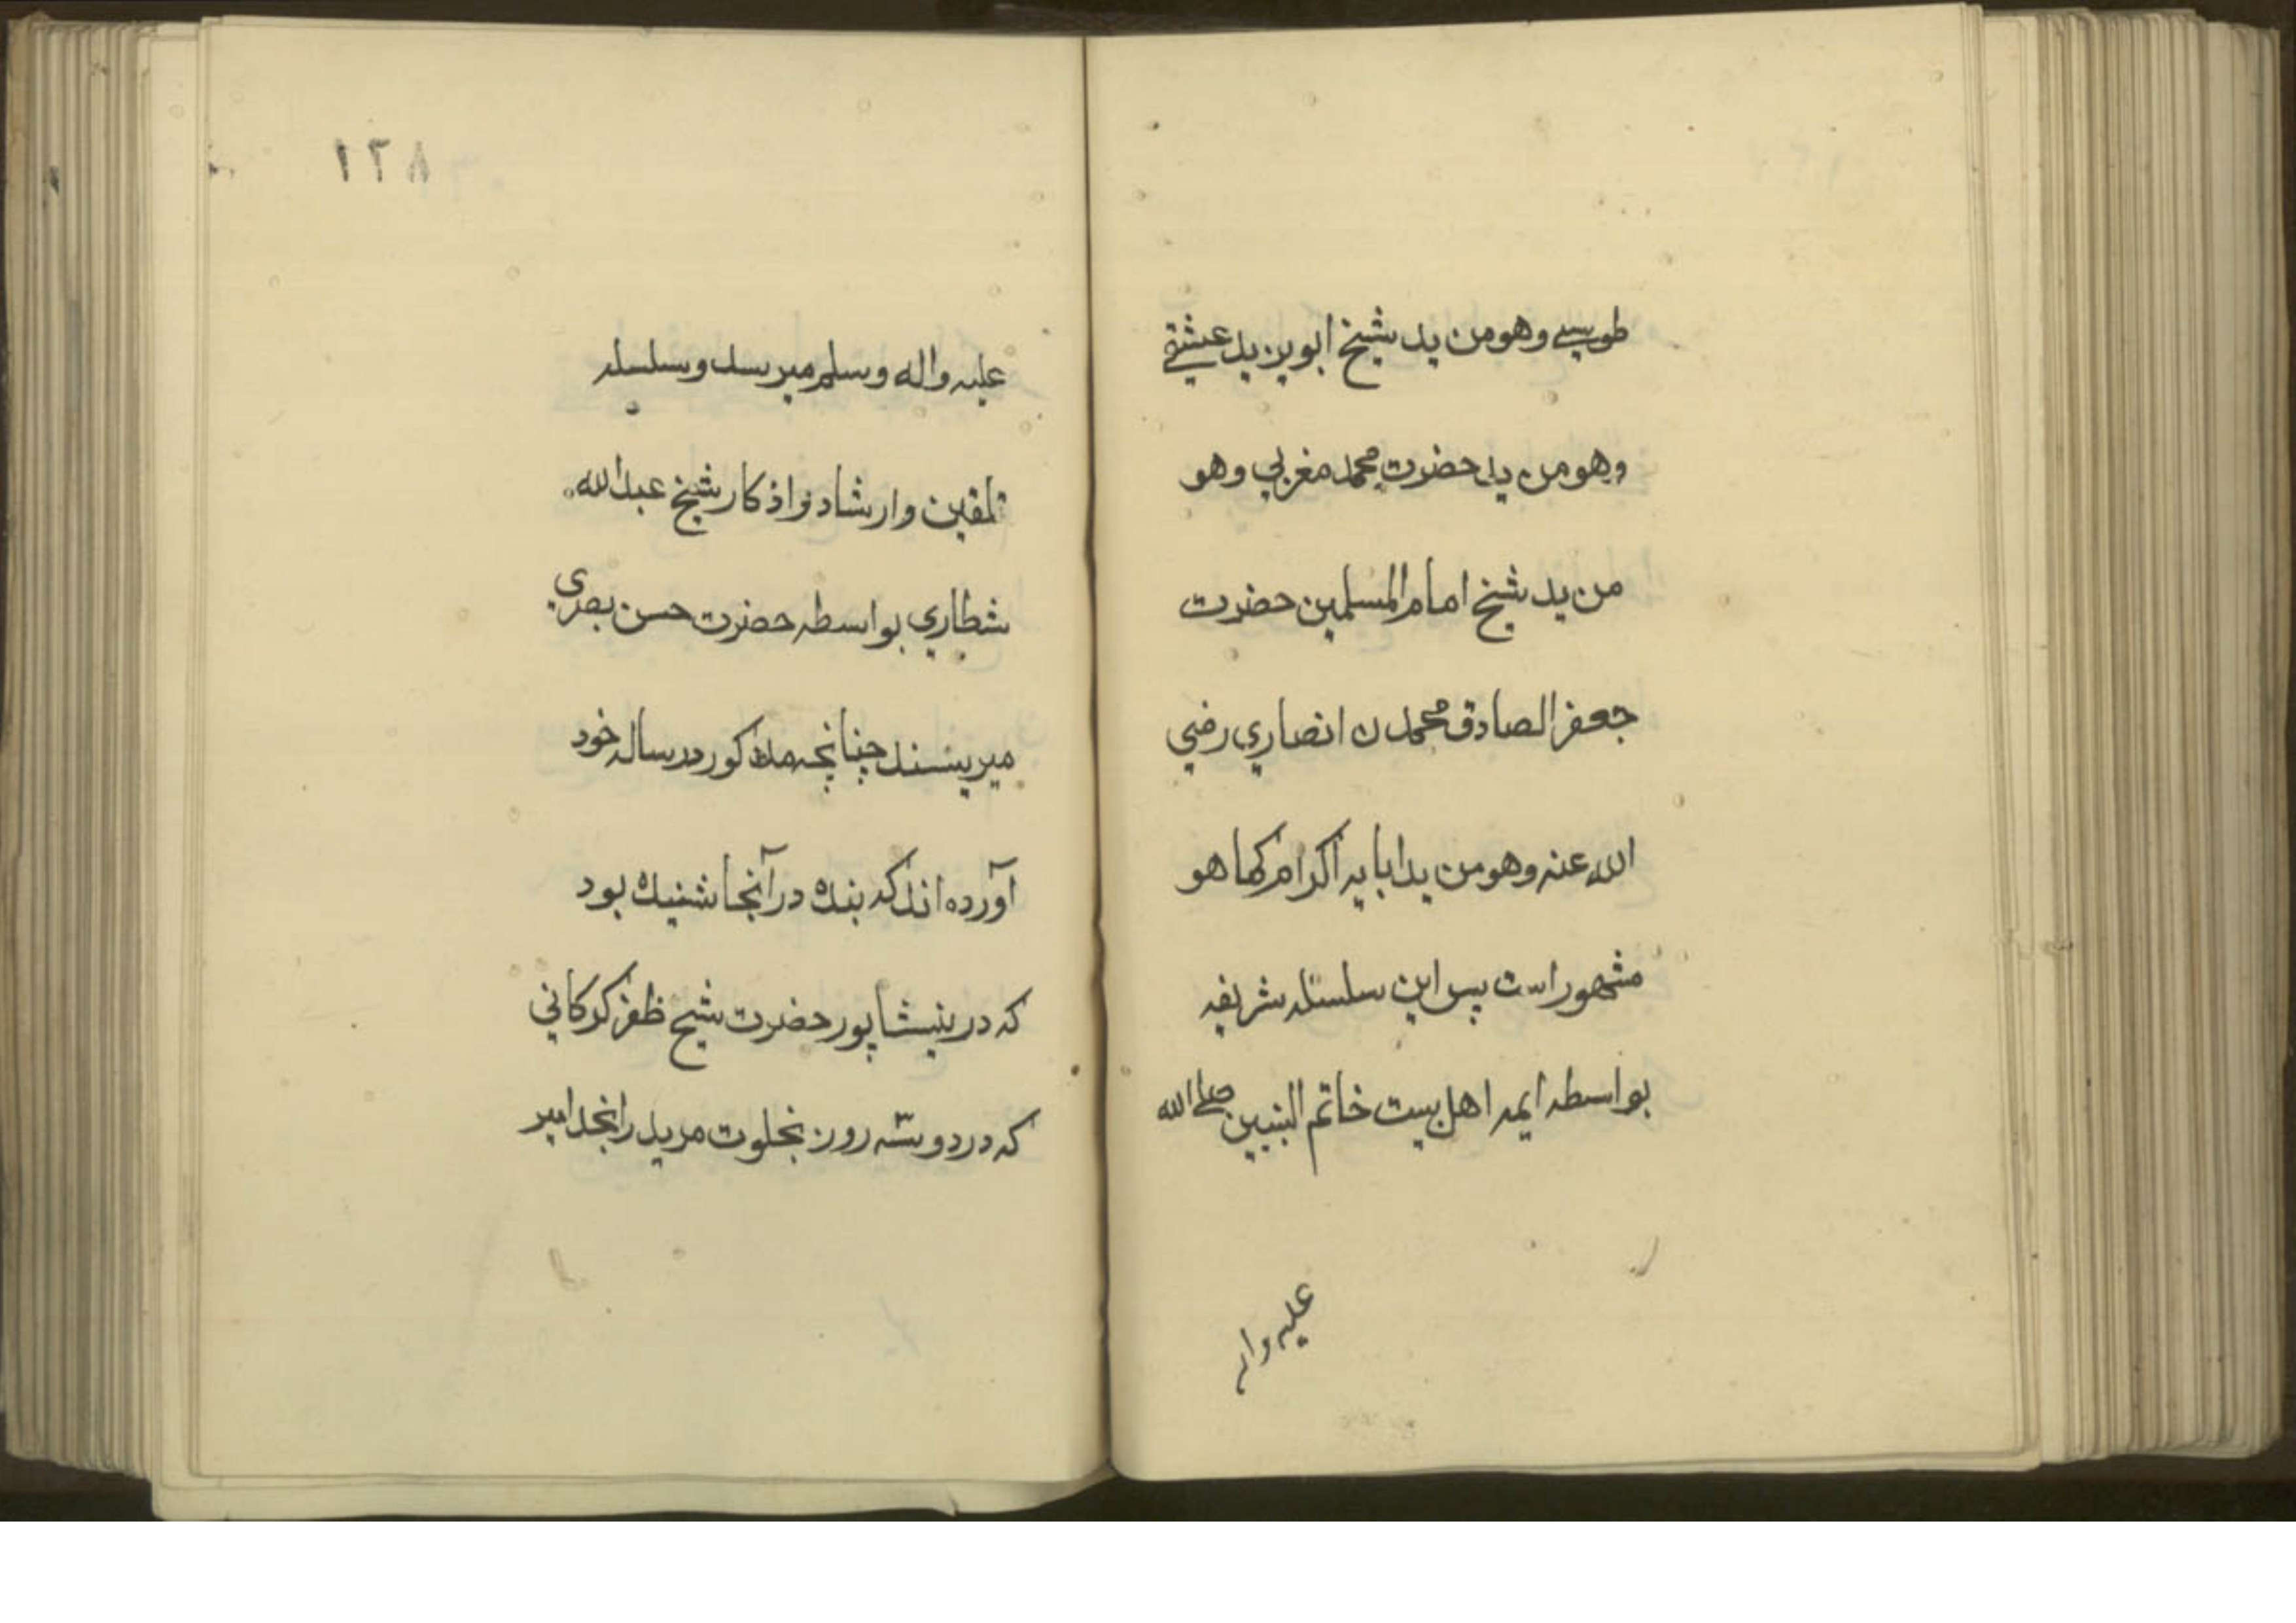 طوسے وهو من يد شيخ ابو يزيد عشقے
وهو من يد حضرت محمد مغربي وهو
من يد شيخ امام المسلمين حضرت
جعفر الصادق محمد ن انصاري رضي
الله عنه وهو من يد ابايه اكرام كما هو
مشهور است پس اين سلسله شريفه
بواسطه ايمه اهل بيت خاتم النبيين صلے الله
عليه وا
١٢٨
عليه واله وسلم ميرسد وسلسله
تلقين وارشاد واذكار شيخ عبد الله
شطاري بواسطه حضرت حسن بصري
ميرسند چنانچه مذكور در ساله خود
آورده اند كه بنده در آنجا شنيده بود
كه در نيشاپور حضرت شيخ ظفر كركاني
كه در دو سه روز بخلوت مريد را نجد امير